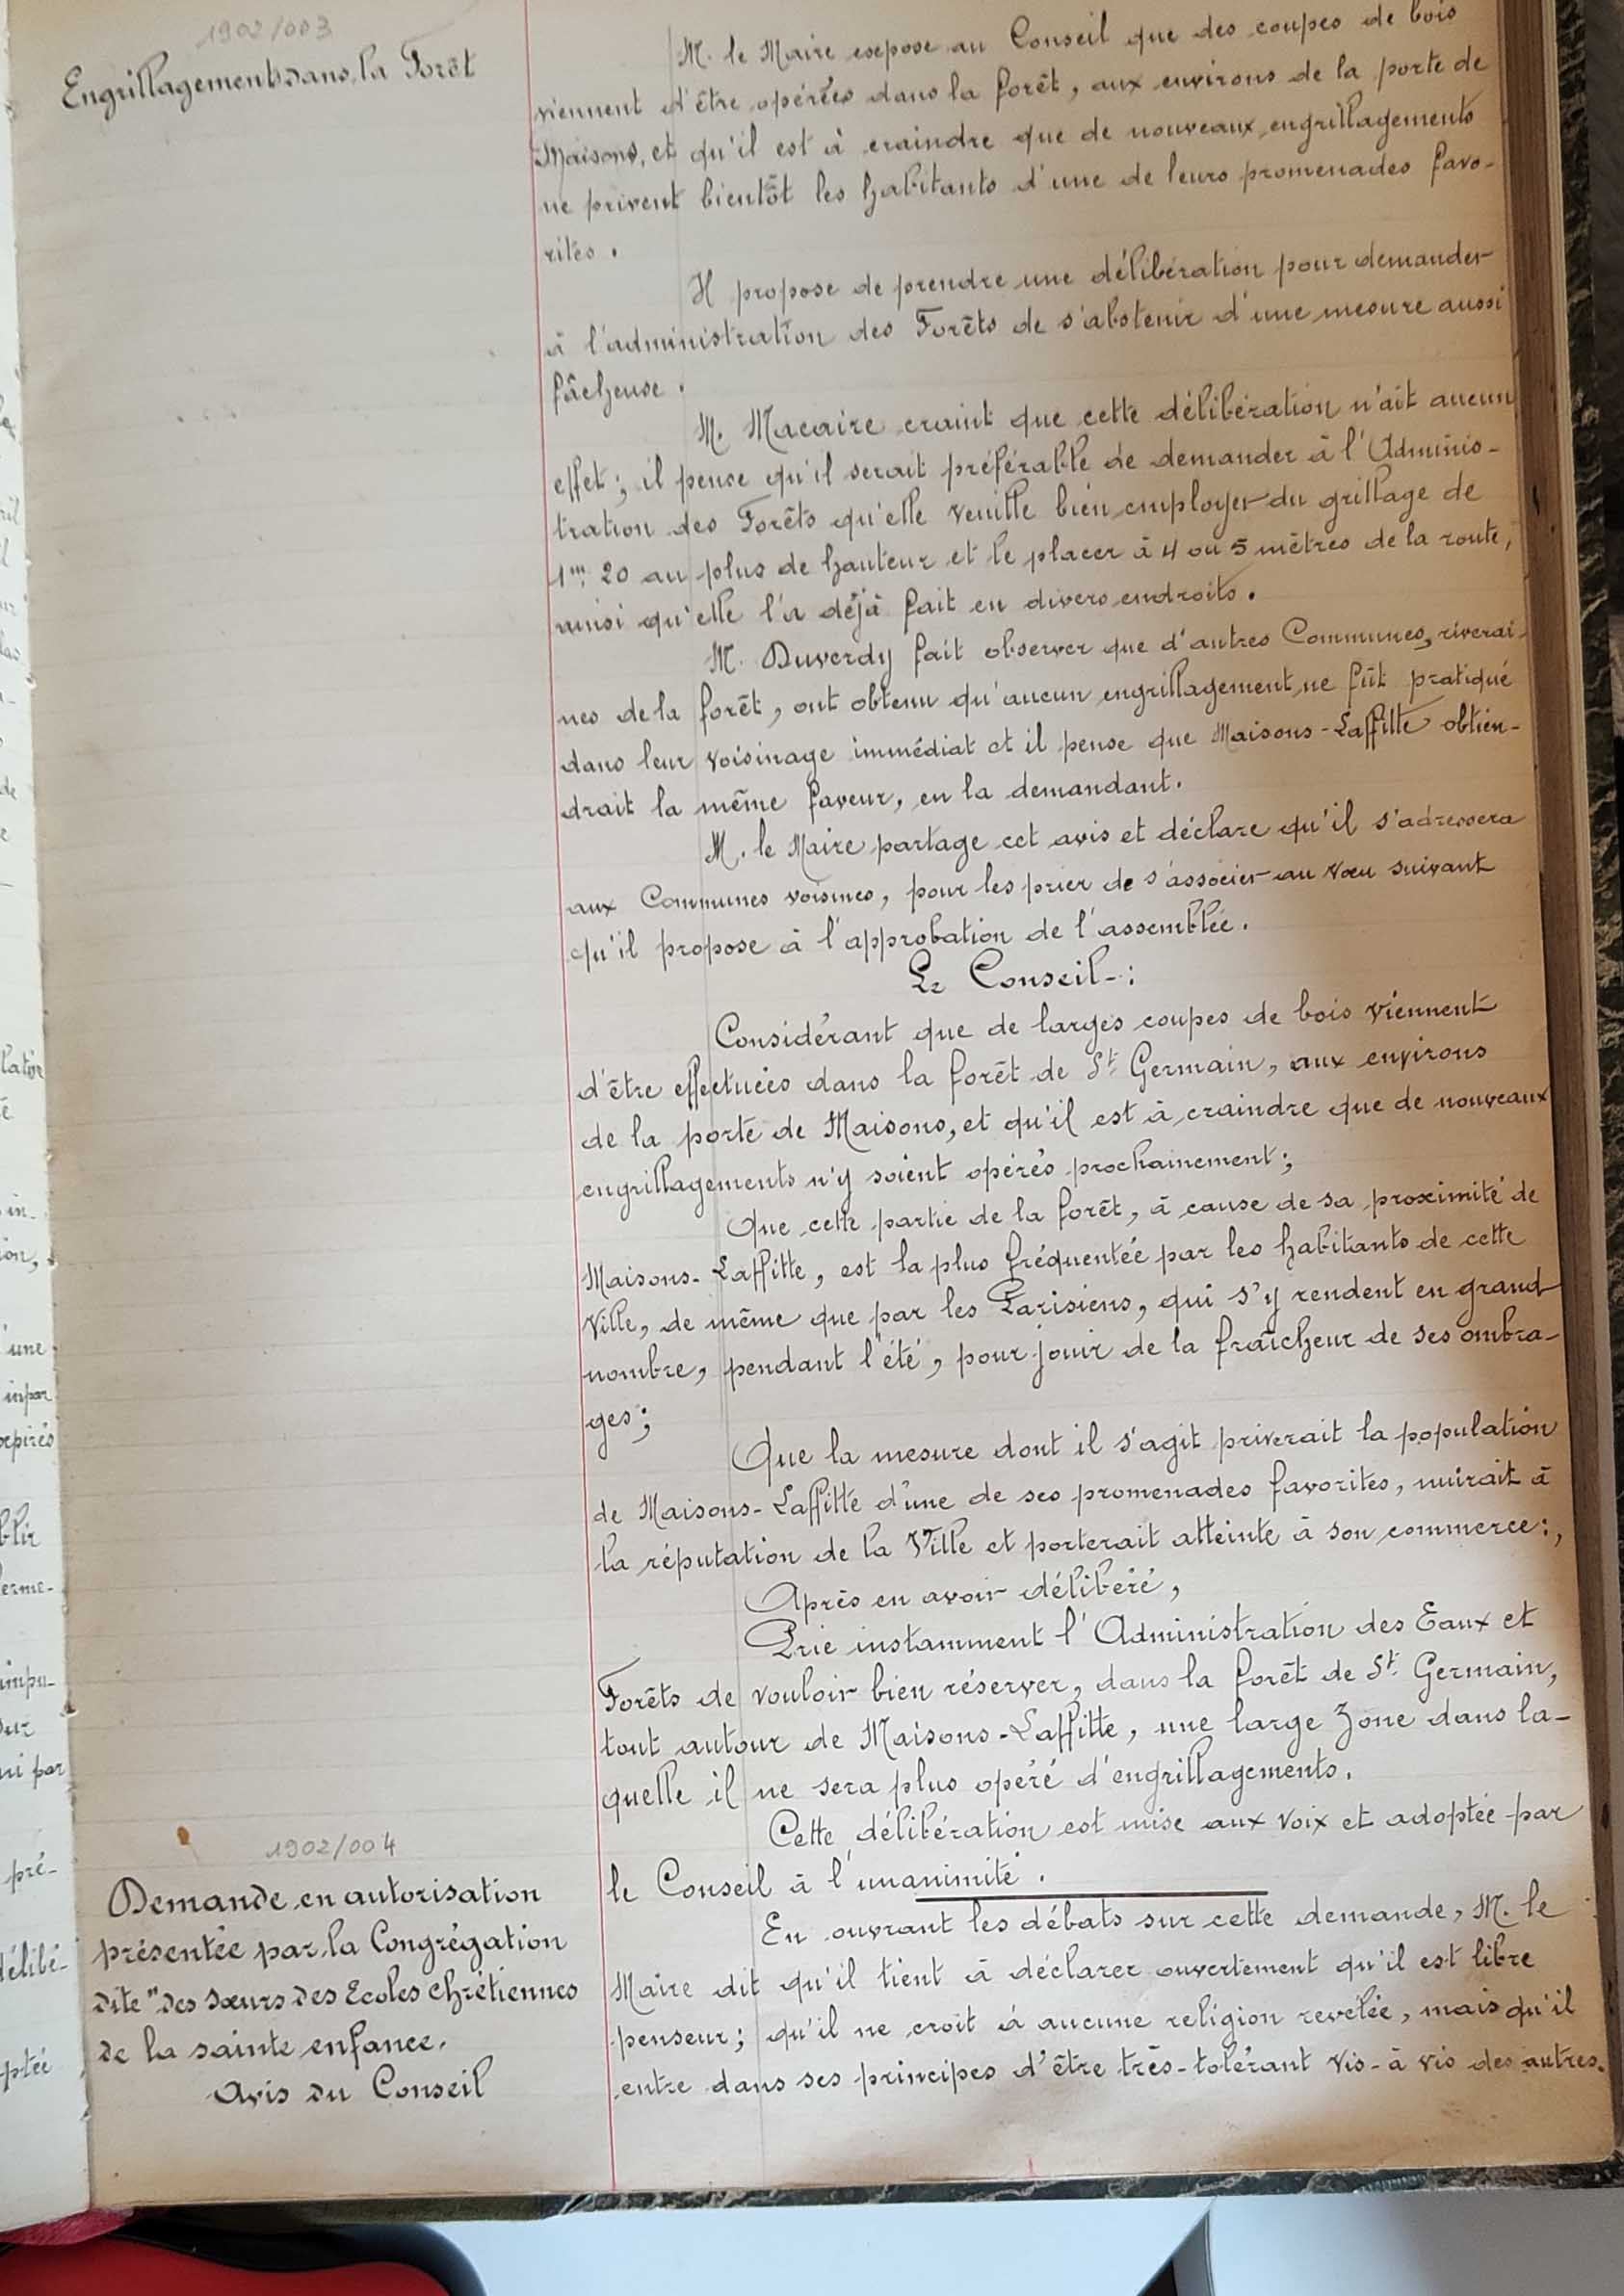 1902/003
Engrillagements dans la Forêt
M. le Maire expose au Conseil que des coupes de bois
viennent d'être opérées dans la forêt, aux environs de la porte de
Maisons, et qu'il est à craindre que de nouveaux engrillagements
ne privent bientôt les habitants d'une de leurs promenades favo-
rites.
Il propose de prendre une délibération pour demander
à l'administration des Forêts de s'abstenir d'une mesure aussi
fâcheuse.
M. Macaire craint que cette délibération n'ait aucun
effet; il pense qu'il serait préférable de demander à l'Adminis-
tration des Forêts qu'elle veuille bien employer du grillage de
1m 20 au plus de hauteur et le placer à 4 ou 5 mètres de la route,
ainsi qu'elle l'a déjà fait en divers endroits.
M. Duverdy fait observer que d'autres Communes, riverai-
nes de la forêt, ont obtenu qu'aucun engrillagement ne fût pratiqué
dans leur voisinage immédiat et il pense que Maisons-Laffitte obtien-
drait la même faveur, en la demandant.
M. le Maire partage cet avis et déclare qu'il s'adressera
aux Communes voisines, pour les prier de s'associer au vœu suivant
qu'il propose à l'approbation de l'assemblée.
Le Conseil :
Considérant que de larges coupes de bois viennent
d'être effectuées dans la forêt de St Germain, aux environs
de la porte de Maisons, et qu'il est à craindre que de nouveaux
engrillagements n'y soient opérés prochainement;
Que cette partie de la forêt, à cause de sa proximité de
Maisons-Laffitte, est la plus fréquentée par les habitants de cette
Ville, de même que par les Parisiens, qui s'y rendent en grand
nombre, pendant l'été, pour jouir de la fraîcheur de ses ombra-
ges;
Que la mesure dont il s'agit priverait la population
de Maisons-Laffitte d'une de ses promenades favorites, nuirait à
la réputation de la Ville et porterait atteinte à son commerce:,
Après en avoir délibéré,
Prie instamment l'Administration des Eaux et
Forêts de vouloir bien réserver, dans la forêt de St Germain,
tout autour de Maisons-Laffitte, une large zone dans la-
quelle il ne sera plus opéré d'engrillagements.
Cette délibération est mise aux voix et adoptée par
le Conseil à l'unanimité.
1902/004
Demande en autorisation
présentée par la Congrégation
dite "des sœurs des Ecoles chrétiennes
de la sainte enfance.
Avis du Conseil
En ouvrant les débats sur cette demande, M. le
Maire dit qu'il tient à déclarer ouvertement qu'il est libre
penseur; qu'il ne croit à aucune religion revélée, mais qu'il
entre dans ses principes d'être très-tolérant vis-à vis des autres.